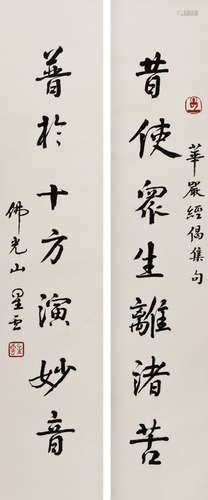 華嚴經偈集句
昔使眾生離諸苦
普於十方演妙音
佛光山星雲